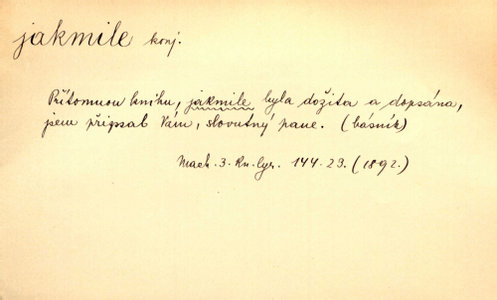 jakmile konj.
Přítomnou knihu, jakmile byla dožita a dopsána,
jsem připsal Vám, slovutný pane. (básník)
Mach. 3. Kn. lyr. 144. 23. (1892.)